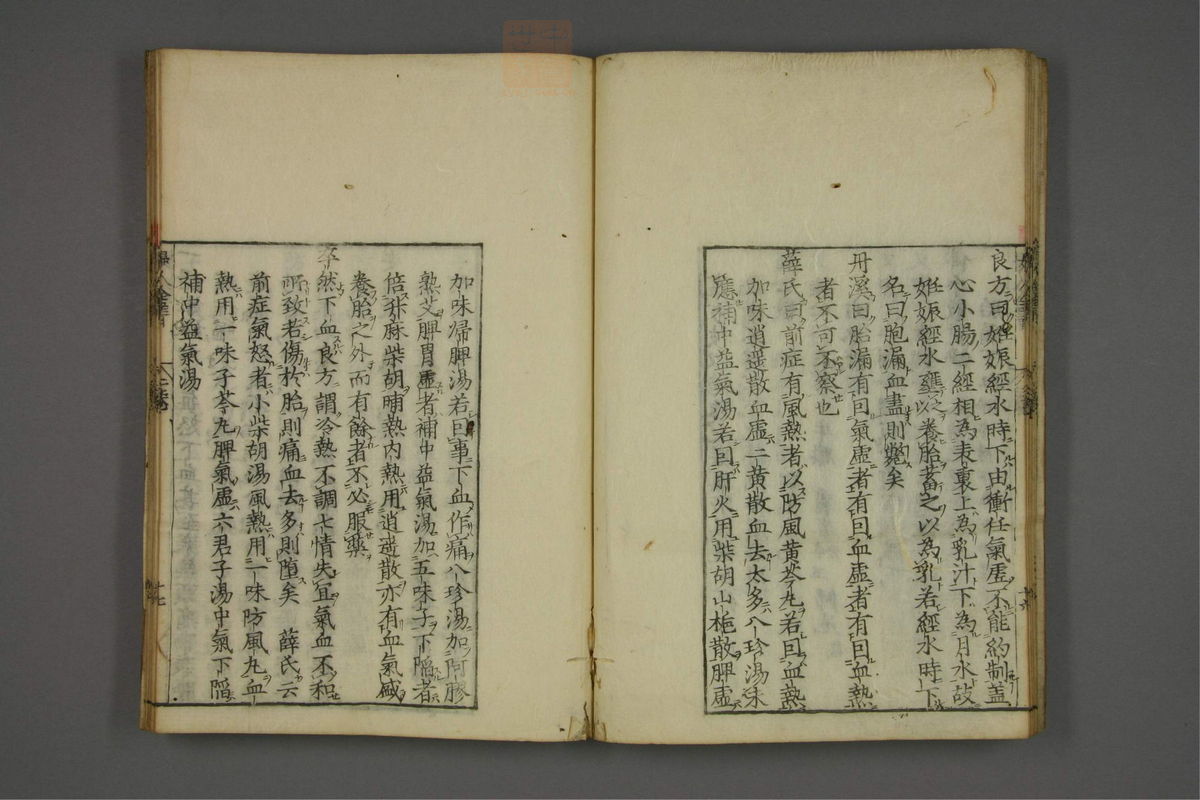 良方曰妊娠經水時下由衝任氣虛不能約制盖
心小腸二經相為表裏上為乳汁下為月水故
妊娠經水壅之以養胎蓄之以為乳若經水時下
名曰胞漏血盡則斃矣
丹溪曰胎漏有因氣虛者有因血虛者有因血熱
者不可不察也
薛氏曰前症有風熱者以防風黄芩丸若因血熱
加味逍遥散血虛二黄散血去太多八珍湯未
應補中益氣湯若因肝火用柴胡山栀散脾虛
加味歸脾湯若因事下血作痛八珍湯加阿膠
熟艾脾胃虛者補中益氣湯加五味子下陥者
倍升麻柴胡晡熱内熱用逍遥散亦有血氣盛
養胎之外而有餘者不必服藥
卒然下血良方謂冷熱不調七情失宜氣血不和
所致若傷於胎則痛血去多則堕矣 薛氏云
前症氣怒者小柴胡湯風熱用一味防風丸血
熱用一味子芩丸脾氣虛六君子湯中氣下陥
補中益氣湯